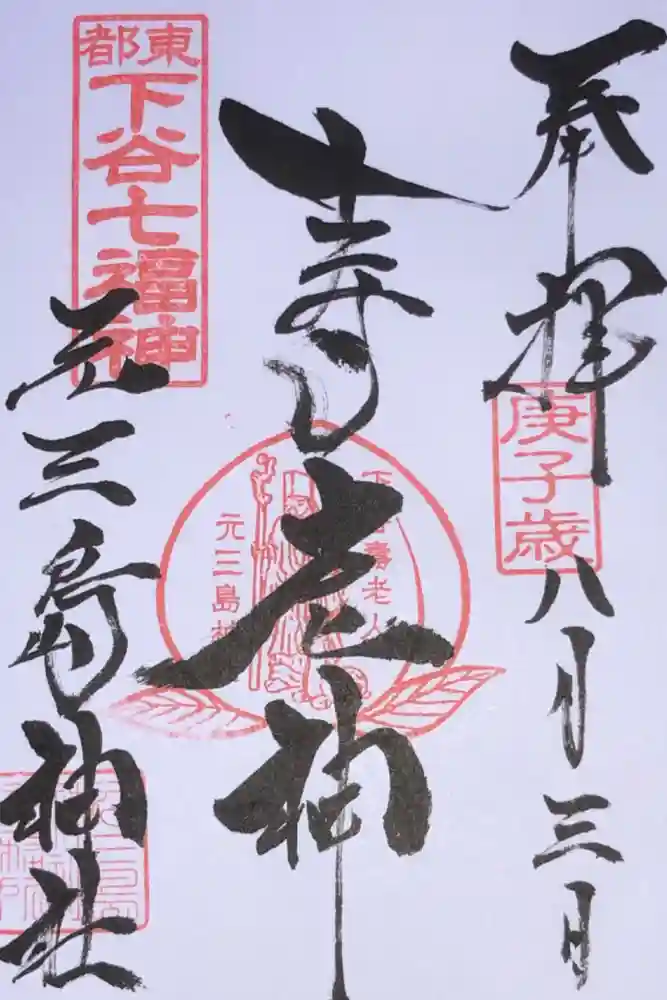 奉拝
庚子歳
八月三日
寿老神
下谷寿老人
元三島神社
東都
下谷七福神
元三島神社